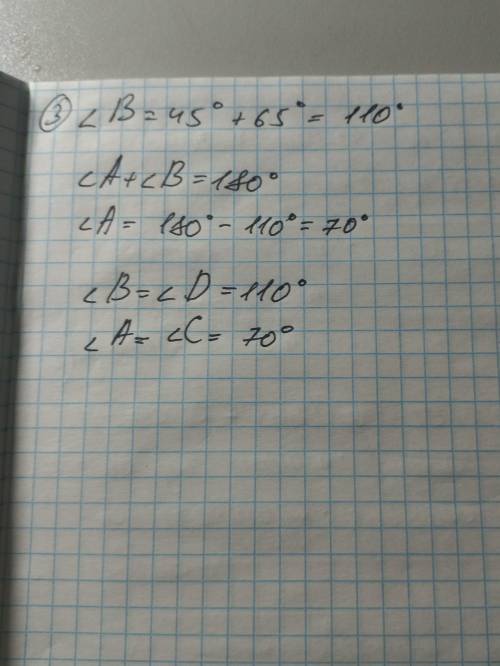 ③ ∠B = 45° + 65° = 110°
∠A + ∠B = 180°
∠A = 180° - 110° = 70°
∠B = ∠D = 110°
∠A = ∠C = 70°